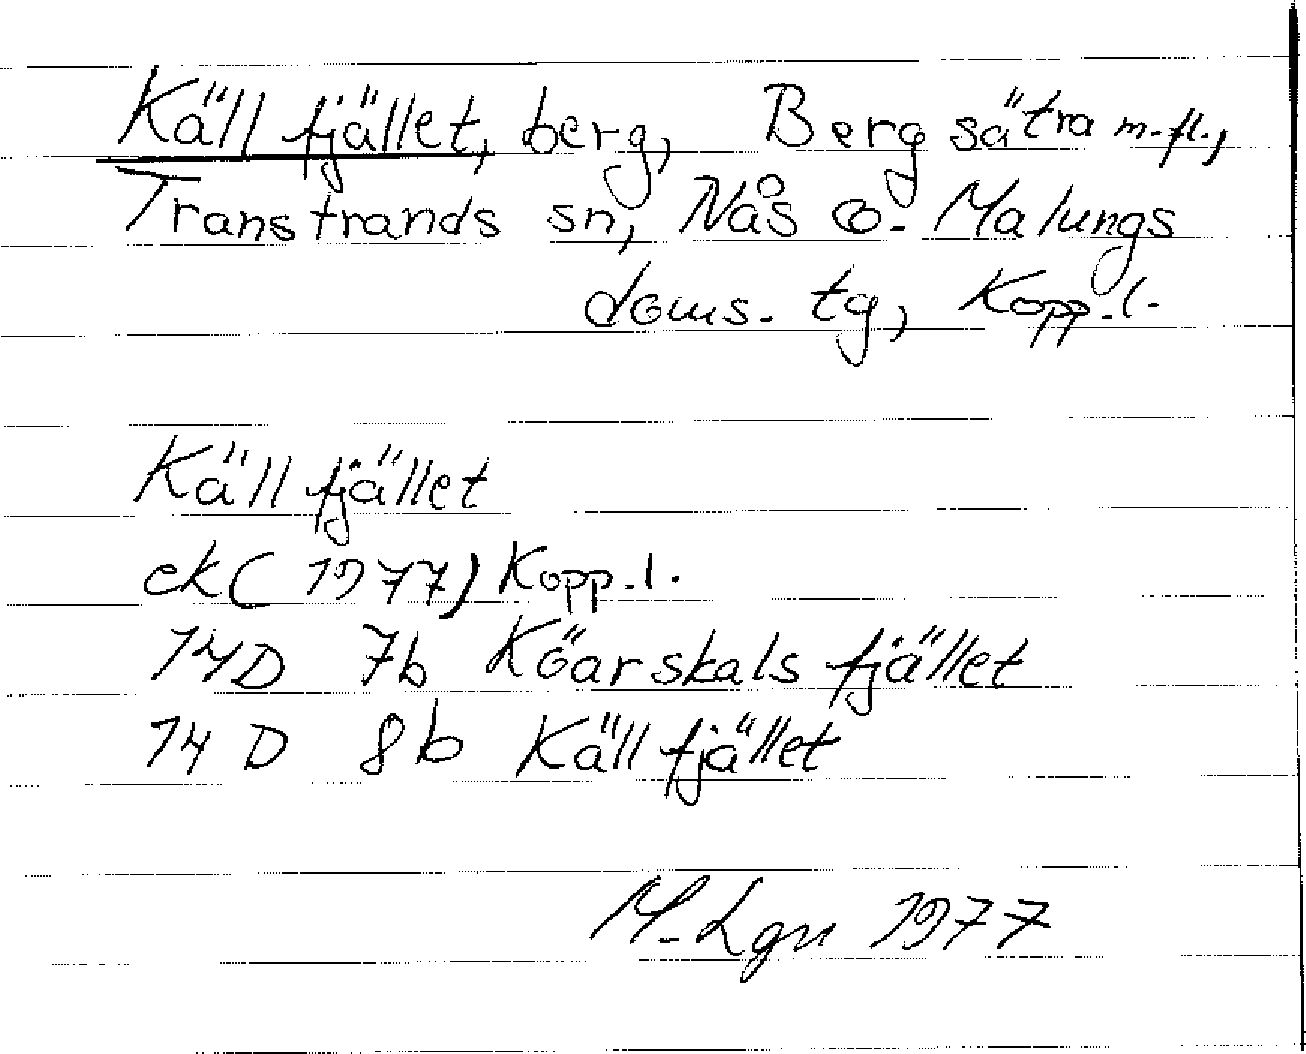 Källfjället, berg, Bergsätra m.fl.,
Transtrands sn, Nås o. Malungs
doms. tg, Kopp.l.
Källfjället
ek (1977) Kopp.l.
14D 7b Köarskalsfjället
14D 8b Källfjället
M. Lgn 1977